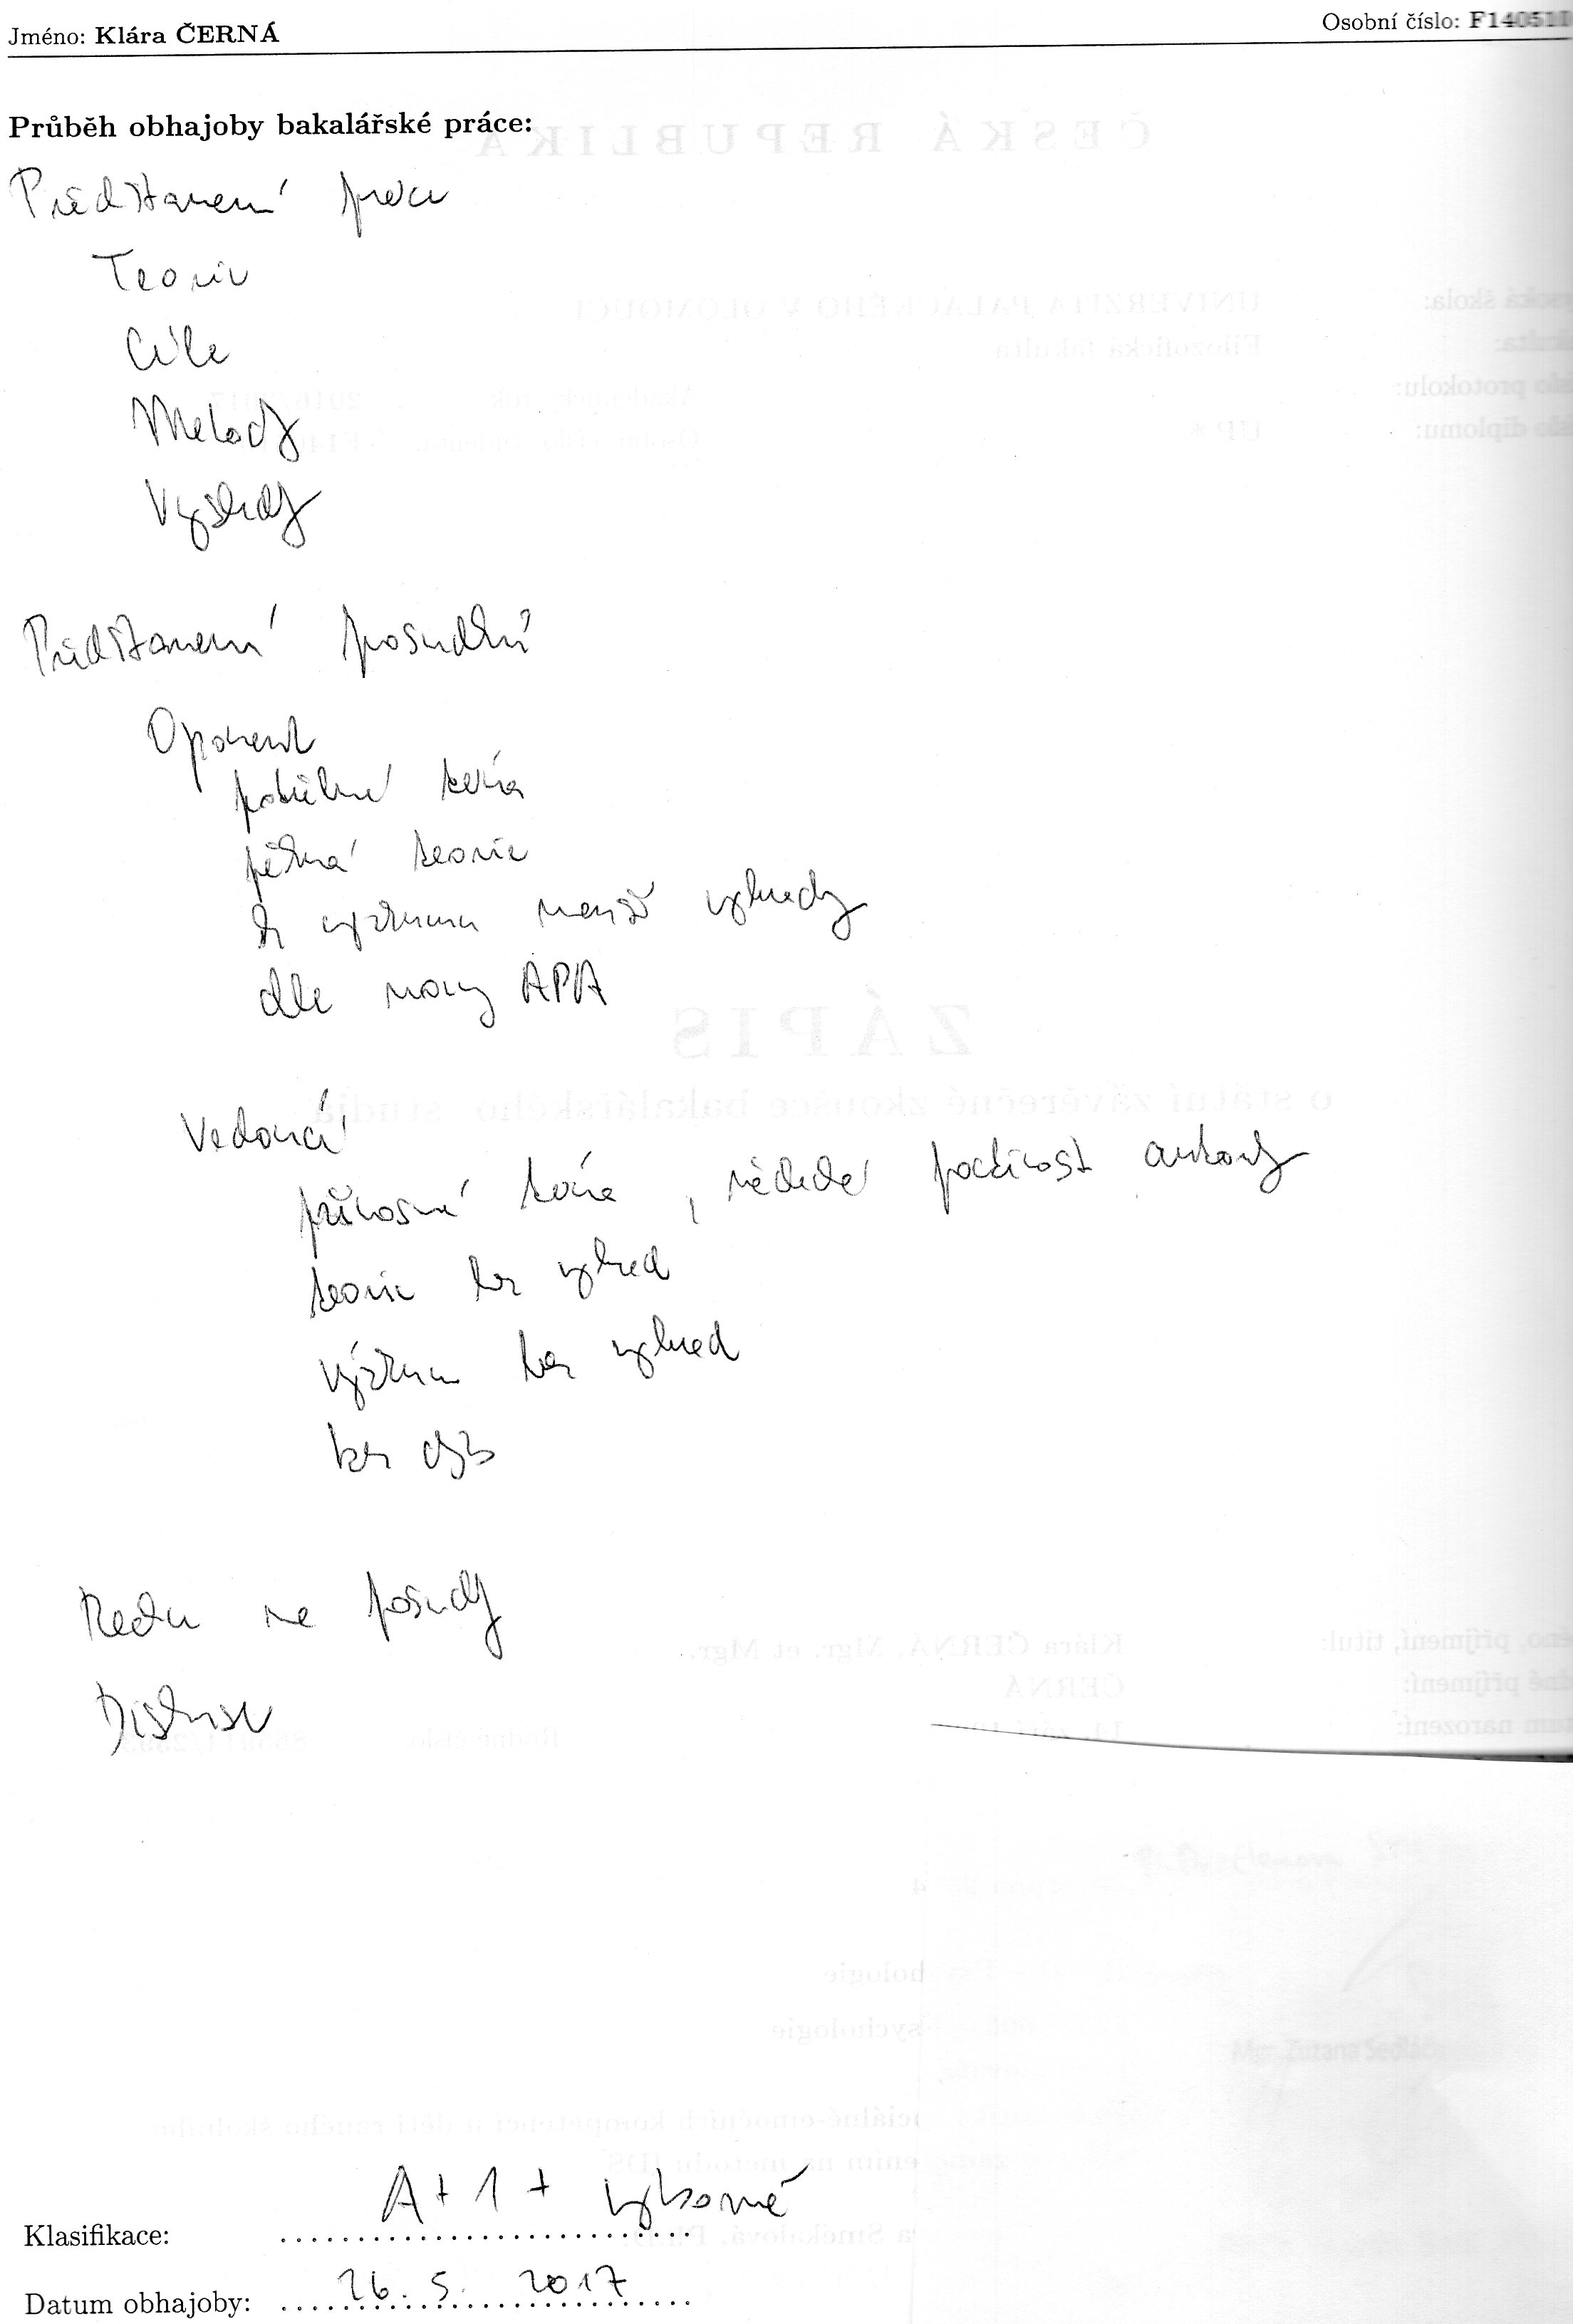 Jméno: Klára ČERNÁ
Osobní číslo: F14051
Průběh obhajoby bakalářské práce:
Představení práce
Teorie
Cíle
Metody
Výsledky
Představení posudků
Oponent
potřebné téma
pěkná teorie
k výzkumu menší výhrady
dle normy APA
Vedoucí
přínosné téma, vědecká poctivost autorky
teorie bez výhrad
výzkum bez výhrad
bez chyb
Reakce na posudky
Diskuse
Klasifikace: A + 1 + výborně
Datum obhajoby: 26. 5. 2017